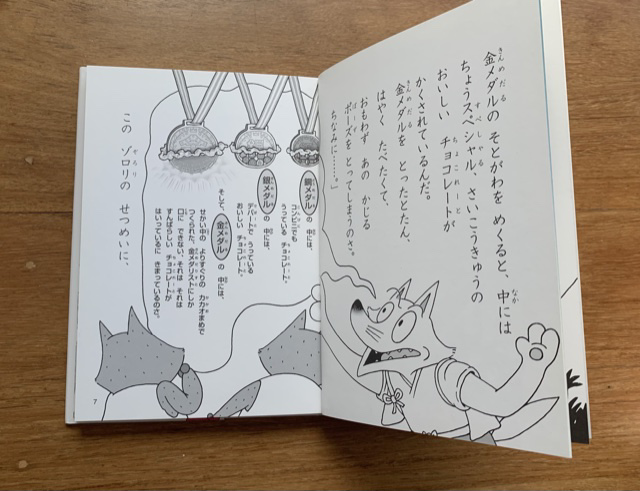 金メダルの そとがわを めくると、中には
ちょうスペシャル、さいこうきゅうの
おいしい チョコレートが
かくされているんだ。
金メダルを とったとたん、
はやく たべたくて、
おもわず あの かじる
ポーズを とってしまうのさ。
ちなみに……。」
銅メダル の 中には、
コンビニでも
うっている チョコレート。
銀メダル の 中には、
デパートで うっている
おいしい チョコレート。
そして、金メダル の 中には、
せかい中の よりすぐりの カカオまめで
つくられた、金メダリストにしか
口に できない、それは それは
すんばらしい チョコレートが
はいっているに きまっているのさ。
この ゾロリの せつめいに、
7